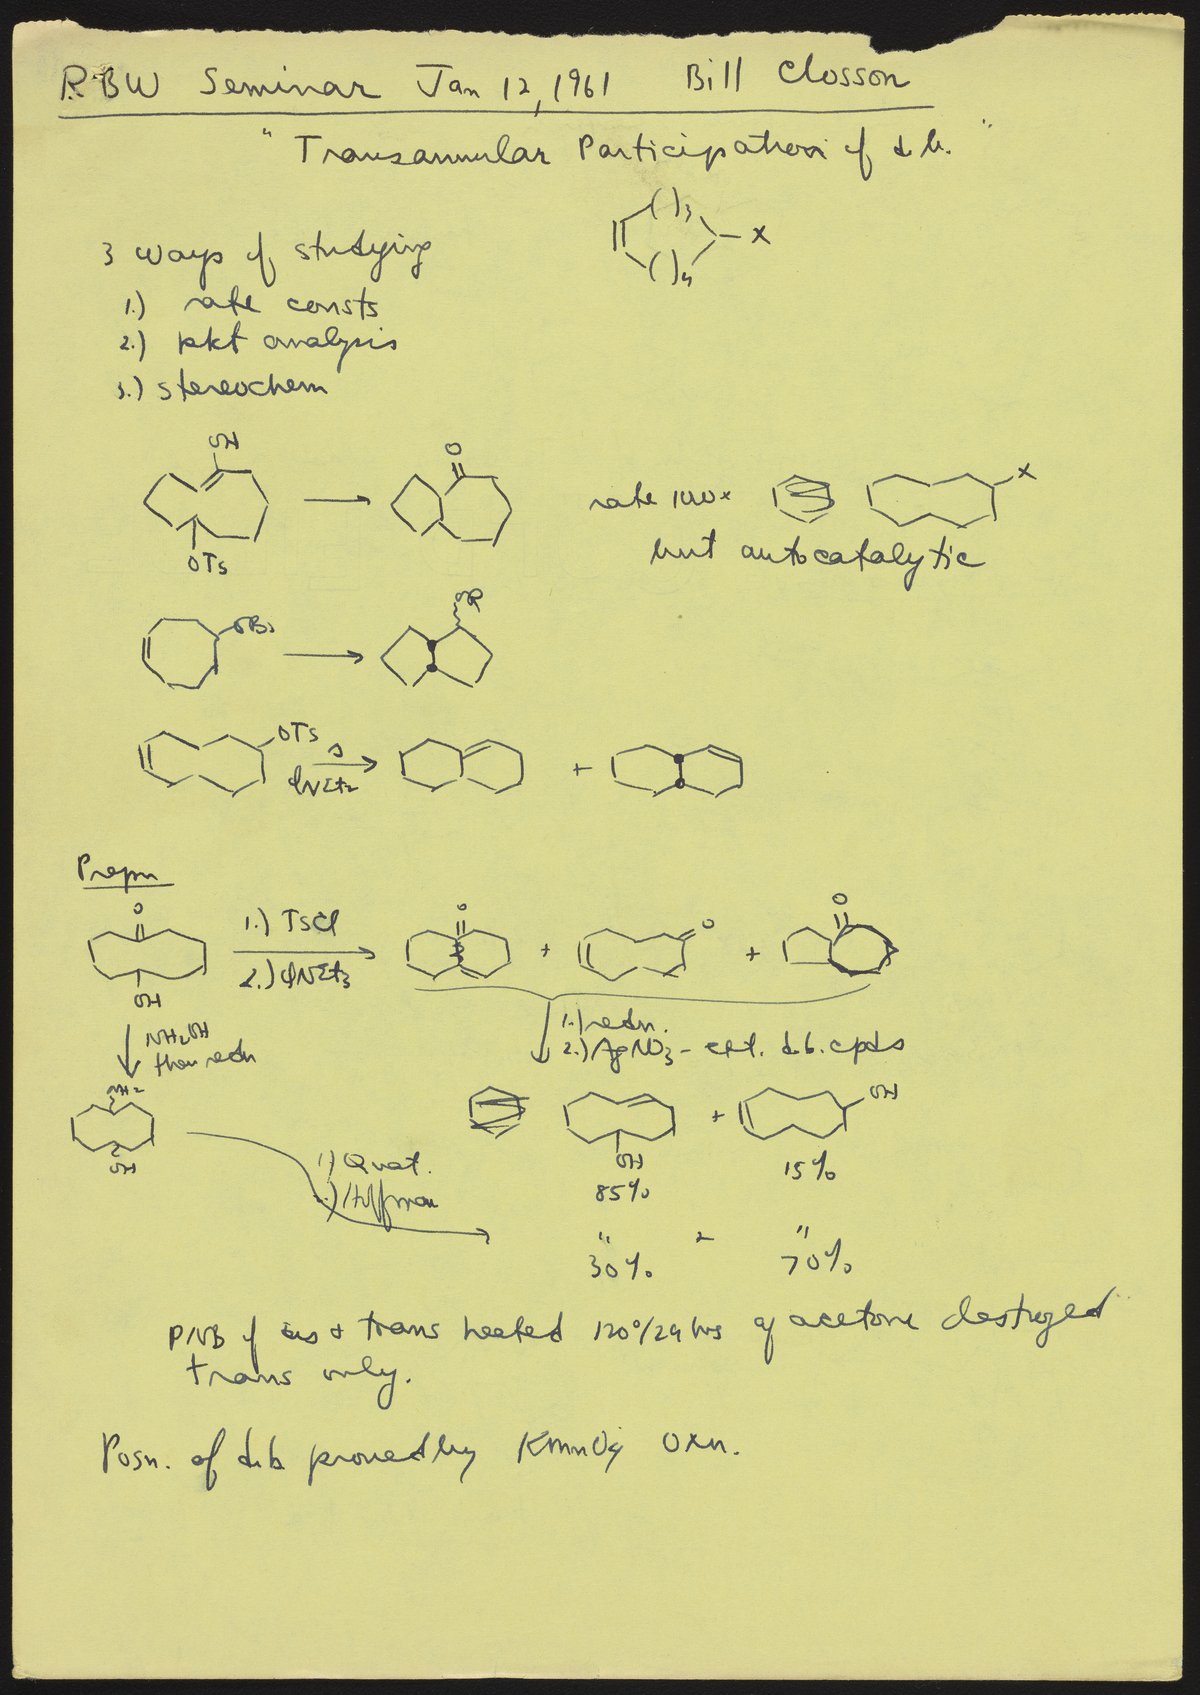 RBW Seminar Jan 12, 1961 Bill Closson
"Transannular Participation of d.b."
( )3
X
( )4
3 ways of studying
1.) rate consts
2.) pkt analysis
3.) stereochem
OH
O
X
rate 100x
OTs
but autocatalytic
OBs
OR
OTs
Δ
ΦNEt2
+
Prepn
O
1.) TsCl
2.) ΦNEt3
O
+
O
+
O
OH
NH2OH
then redn
1.) redn.
2.) AgNO3 - ext. d.b. cpds
NH2
OH
+
OH
OH
85%
15%
1) Quat.
2.) Hoffman
"
"
30%
70%
PNB of cis & trans heated 120°/24 hrs acetone destroyed
trans only.
Posn. of d.b proved by KMnO4 oxn.